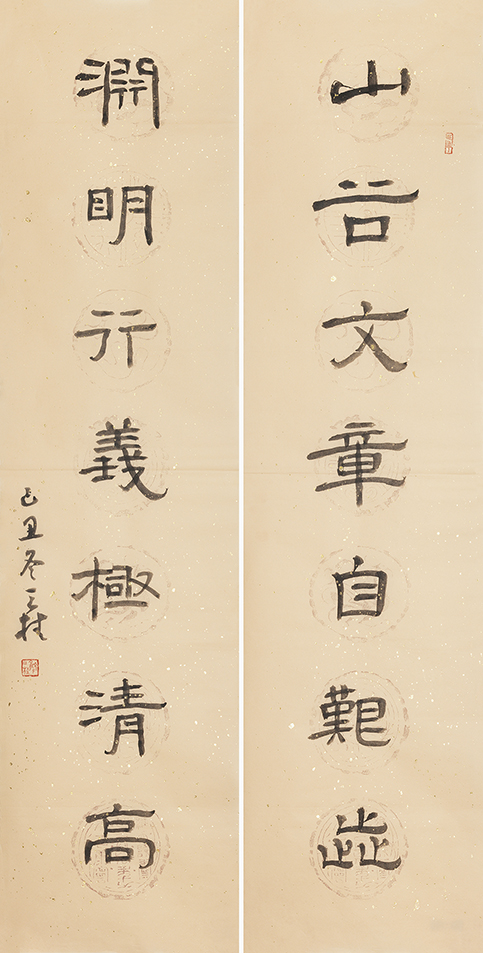 山谷文章自艱歮
淵明行義極清高
己丑冬